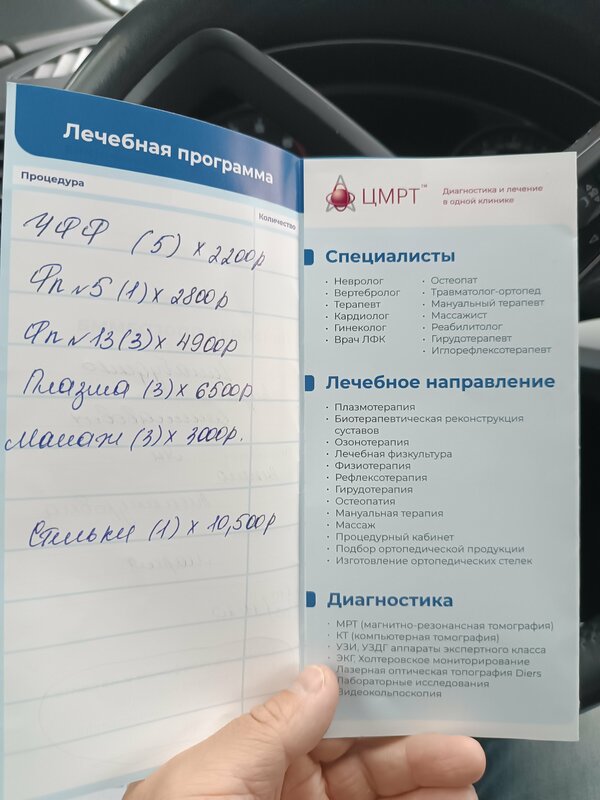 Лечебная программа
Процедура
Количество
УФФ (5) х 2200р
Фп №5 (1) х 2800р
Фп №13 (3) х 4900р
Плазма (3) х 6500р
Массаж (3) х 3000р.
Стельки (1) х 10,500р
ЦМРТ™
Диагностика и лечение
в одной клинике
Специалисты
• Невролог
• Вертебролог
• Терапевт
• Кардиолог
• Гинеколог
• Врач ЛФК
• Остеопат
• Травматолог-ортопед
• Мануальный терапевт
• Массажист
• Реабилитолог
• Гирудотерапевт
• Иглорефлексотерапевт
Лечебное направление
• Плазмотерапия
• Биотерапевтическая реконструкция
суставов
• Озонотерапия
• Лечебная физкультура
• Физиотерапия
• Рефлексотерапия
• Гирудотерапия
• Остеопатия
• Мануальная терапия
• Массаж
• Процедурный кабинет
• Подбор ортопедической продукции
• Изготовление ортопедических стелек
Диагностика
• МРТ (магнитно-резонансная томография)
• КТ (компьютерная томография)
• УЗИ, УЗДГ аппараты экспертного класса
• ЭКГ, Холтеровское мониторирование
Лазерная оптическая топография Diers
Лабораторные исследования
Видеокольпоскопия